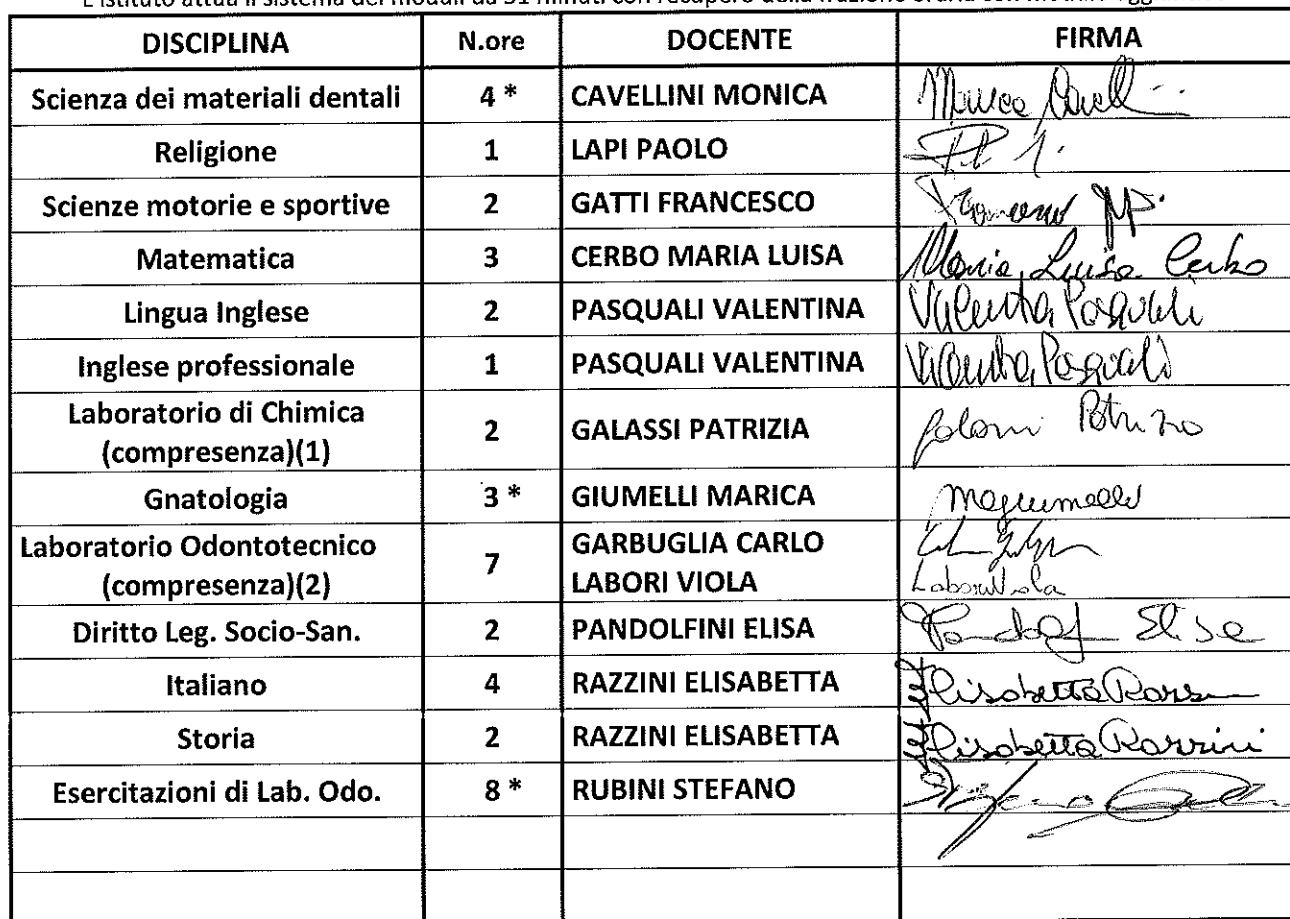 L'Istituto attua il sistema dei moduli da 51 minuti con recupero della frazione oraria con moduli
DISCIPLINA N.ore DOCENTE FIRMA
Scienza dei materiali dentali 4 * CAVELLINI MONICA
Religione 1 LAPI PAOLO
Scienze motorie e sportive 2 GATTI FRANCESCO
Matematica 3 CERBO MARIA LUISA Maria Luisa Cerbo
Lingua Inglese 2 PASQUALI VALENTINA Valentina Pasquali
Inglese professionale 1 PASQUALI VALENTINA Valentina Pasquali
Laboratorio di Chimica
(compresenza)(1) 2 GALASSI PATRIZIA
Gnatologia 3 * GIUMELLI MARICA
Laboratorio Odontotecnico GARBUGLIA CARLO
(compresenza)(2) 7 LABORI VIOLA Labori Viola
Diritto Leg. Socio-San. 2 PANDOLFINI ELISA Elisa
Italiano 4 RAZZINI ELISABETTA Elisabetta
Storia 2 RAZZINI ELISABETTA Elisabetta Razzini
Esercitazioni di Lab. Odo. 8 * RUBINI STEFANO